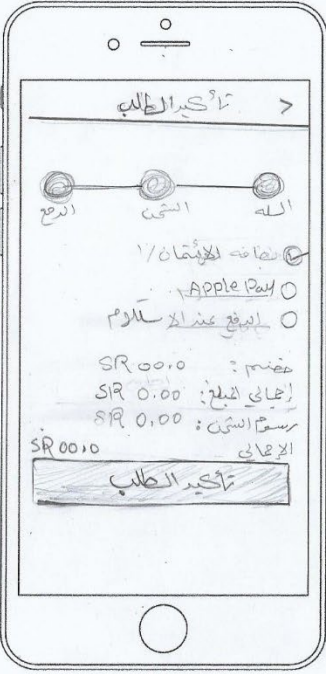 تأكيد الطلب >
السله الشحن الدفع
بطاقه الائتمان
Apple Pay
الدفع عند الاستلام
خصم: SR 00.0
إجمالي المبلغ: SR 0.00
رسوم الشحن: SR 0.00
الإجمالي SR 00.0
تأكيد الطلب